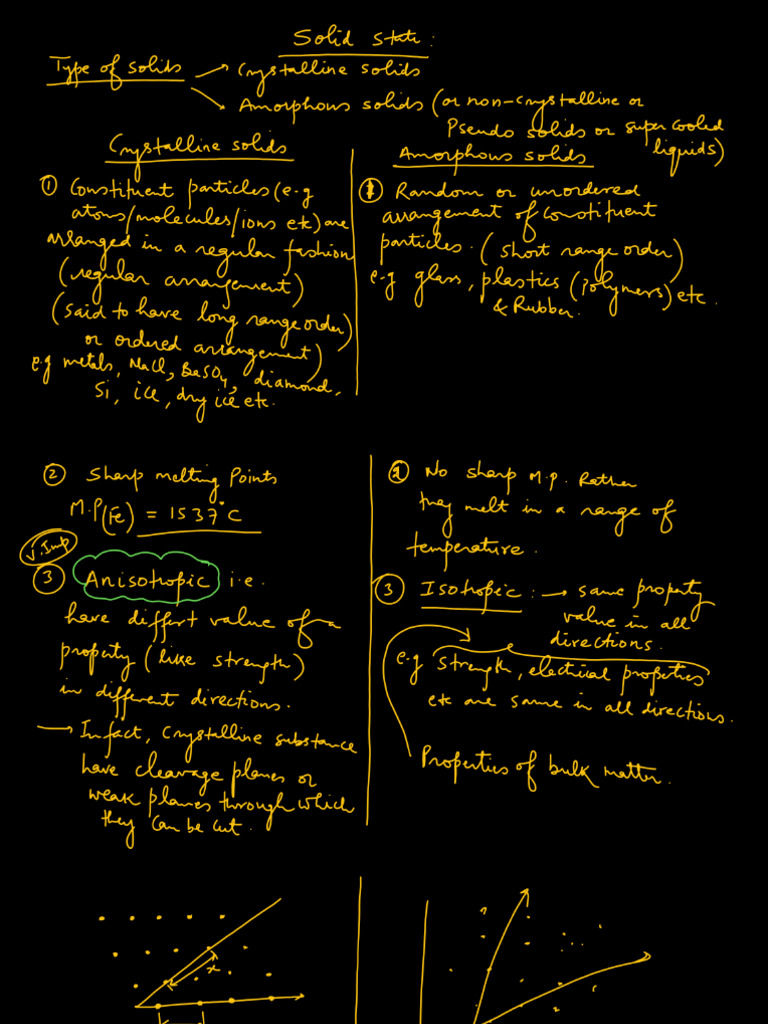 Solid State:
Type of solids → Crystalline solids
→ Amorphous solids (or non-crystalline or
Pseudo solids or super cooled
liquids)
Crystalline solids
① Constituent particles (e.g
atoms/molecules/ions etc) are
arranged in a regular fashion
(regular arrangement)
(said to have long range order)
or ordered arrangement)
e.g metals, NaCl, BaSO4, diamond,
Si, ice, dry ice etc.
Amorphous solids
① Random or unordered
arrangement of constituent
particles. (short range order)
e.g glass, plastics (polymers) etc.
& Rubber.
② Sharp melting Points
M.P(Fe) = 1537°C
V.Imp
③ Anisotropic i.e.
have differt value of a
property (like strength)
in different directions.
→ Infact, Crystalline substance
have cleavage planes or
weak planes through which
they can be cut.
② No sharp M.p. Rather
they melt in a range of
temperature.
③ Isotropic: → same property
value in all
directions.
e.g Strength, electrical properties
etc are same in all directions.
Properties of bulk matter.
x